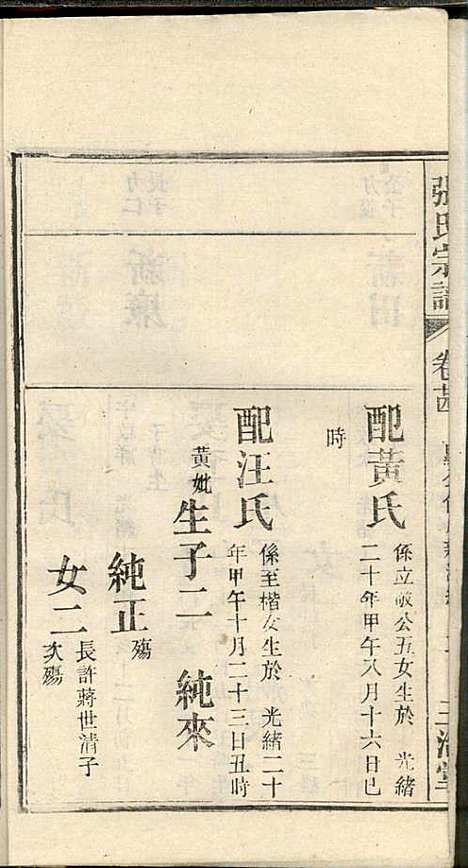 張氏宗譜
卷十四
三治堂
配黃氏
係立敬公五女生於 光緒
二十年甲午八月十六日巳
時
配汪氏
係至楷女生於 光緒二十
年甲午十月二十三日丑時
黃妣
生子二 純來
純正
殤
女二
長許蔣世清子
次殤